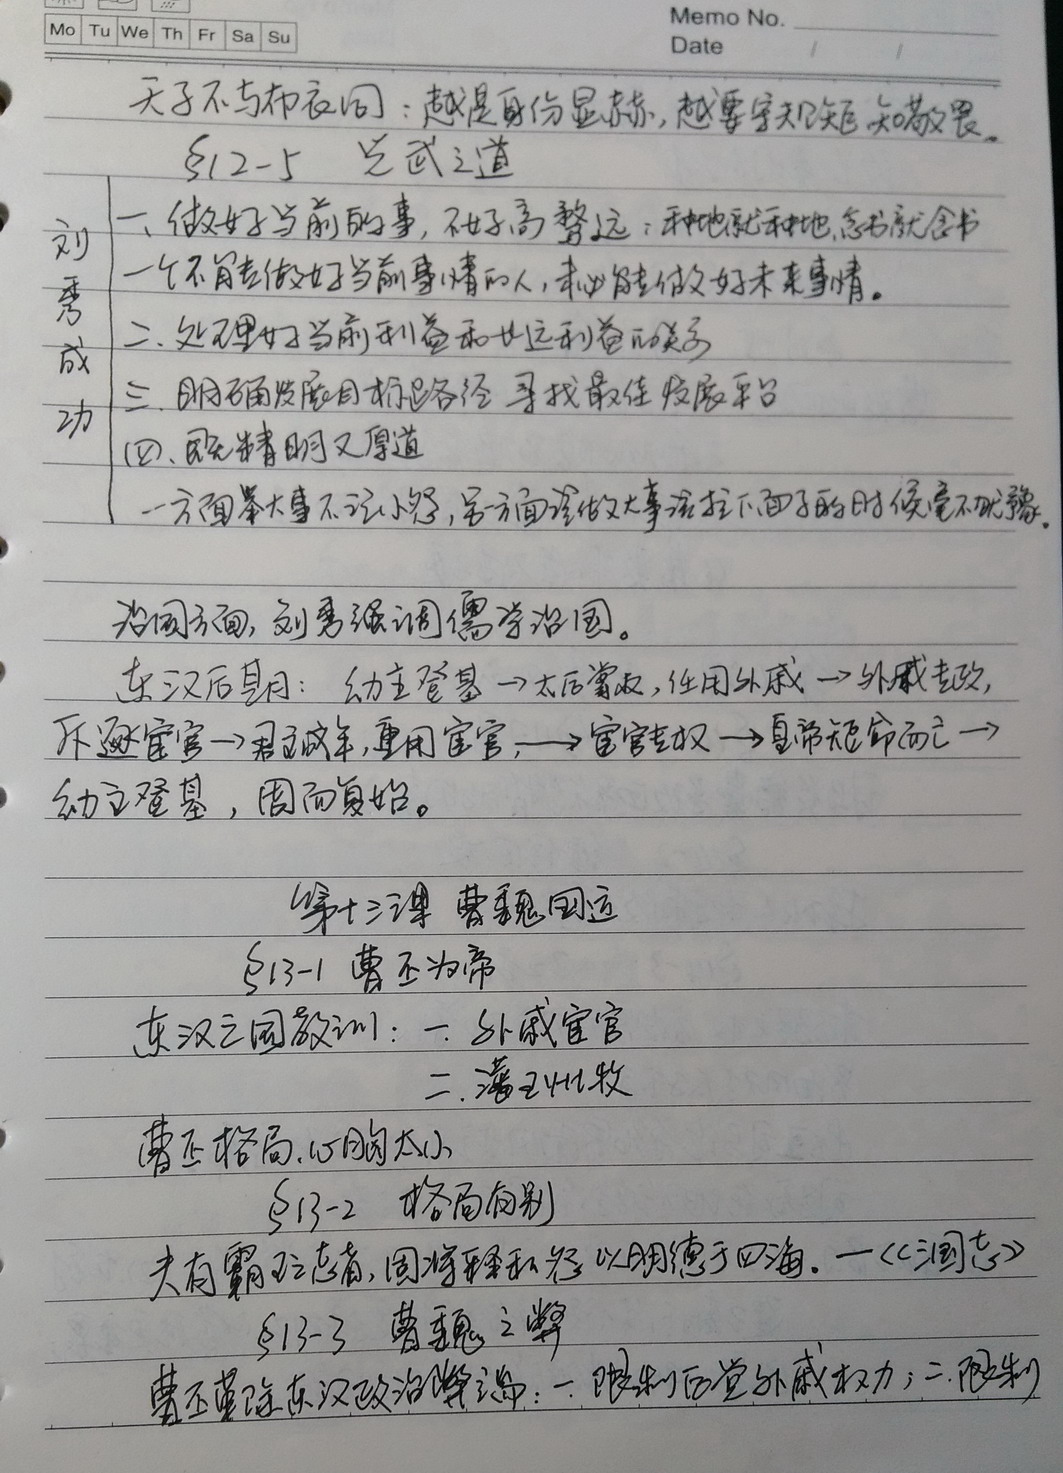 Mo Tu We Th Fr Sa Su
Memo No.
Date / /
天子不与布衣同：越是身份显赫，越要守规矩知敬畏。
§12-5 光武之道
刘秀成功
一、做好当前的事，不好高骛远：种地就种地，念书就念书
一个不能做好当前事情的人，未必能做好未来事情。
二、处理好当前利益和长远利益的关系
三、明确发展目标路径 寻找最佳发展平台
(四)、既精明又厚道
一方面举大事不记小怨，另方面该做大事该拉下面子的时候毫不犹豫。
治国方面，刘秀强调儒学治国。
东汉后期：幼主登基→太后掌权，任用外戚→外戚专政，
斥逐宦官→君主成年，重用宦官，→宦官专权→皇帝短命而亡→
幼主登基，周而复始。
第十三课 曹魏国运
§13-1 曹丕为帝
东汉亡国教训：一、外戚宦官
二、藩王州牧
曹丕格局、心胸太小
§13-2 格局有别
夫有霸王志者，固将释私怨以明德于四海。—《三国志》
§13-3 曹魏之弊
曹丕革除东汉政治弊端：一、限制后党外戚权力；二、限制